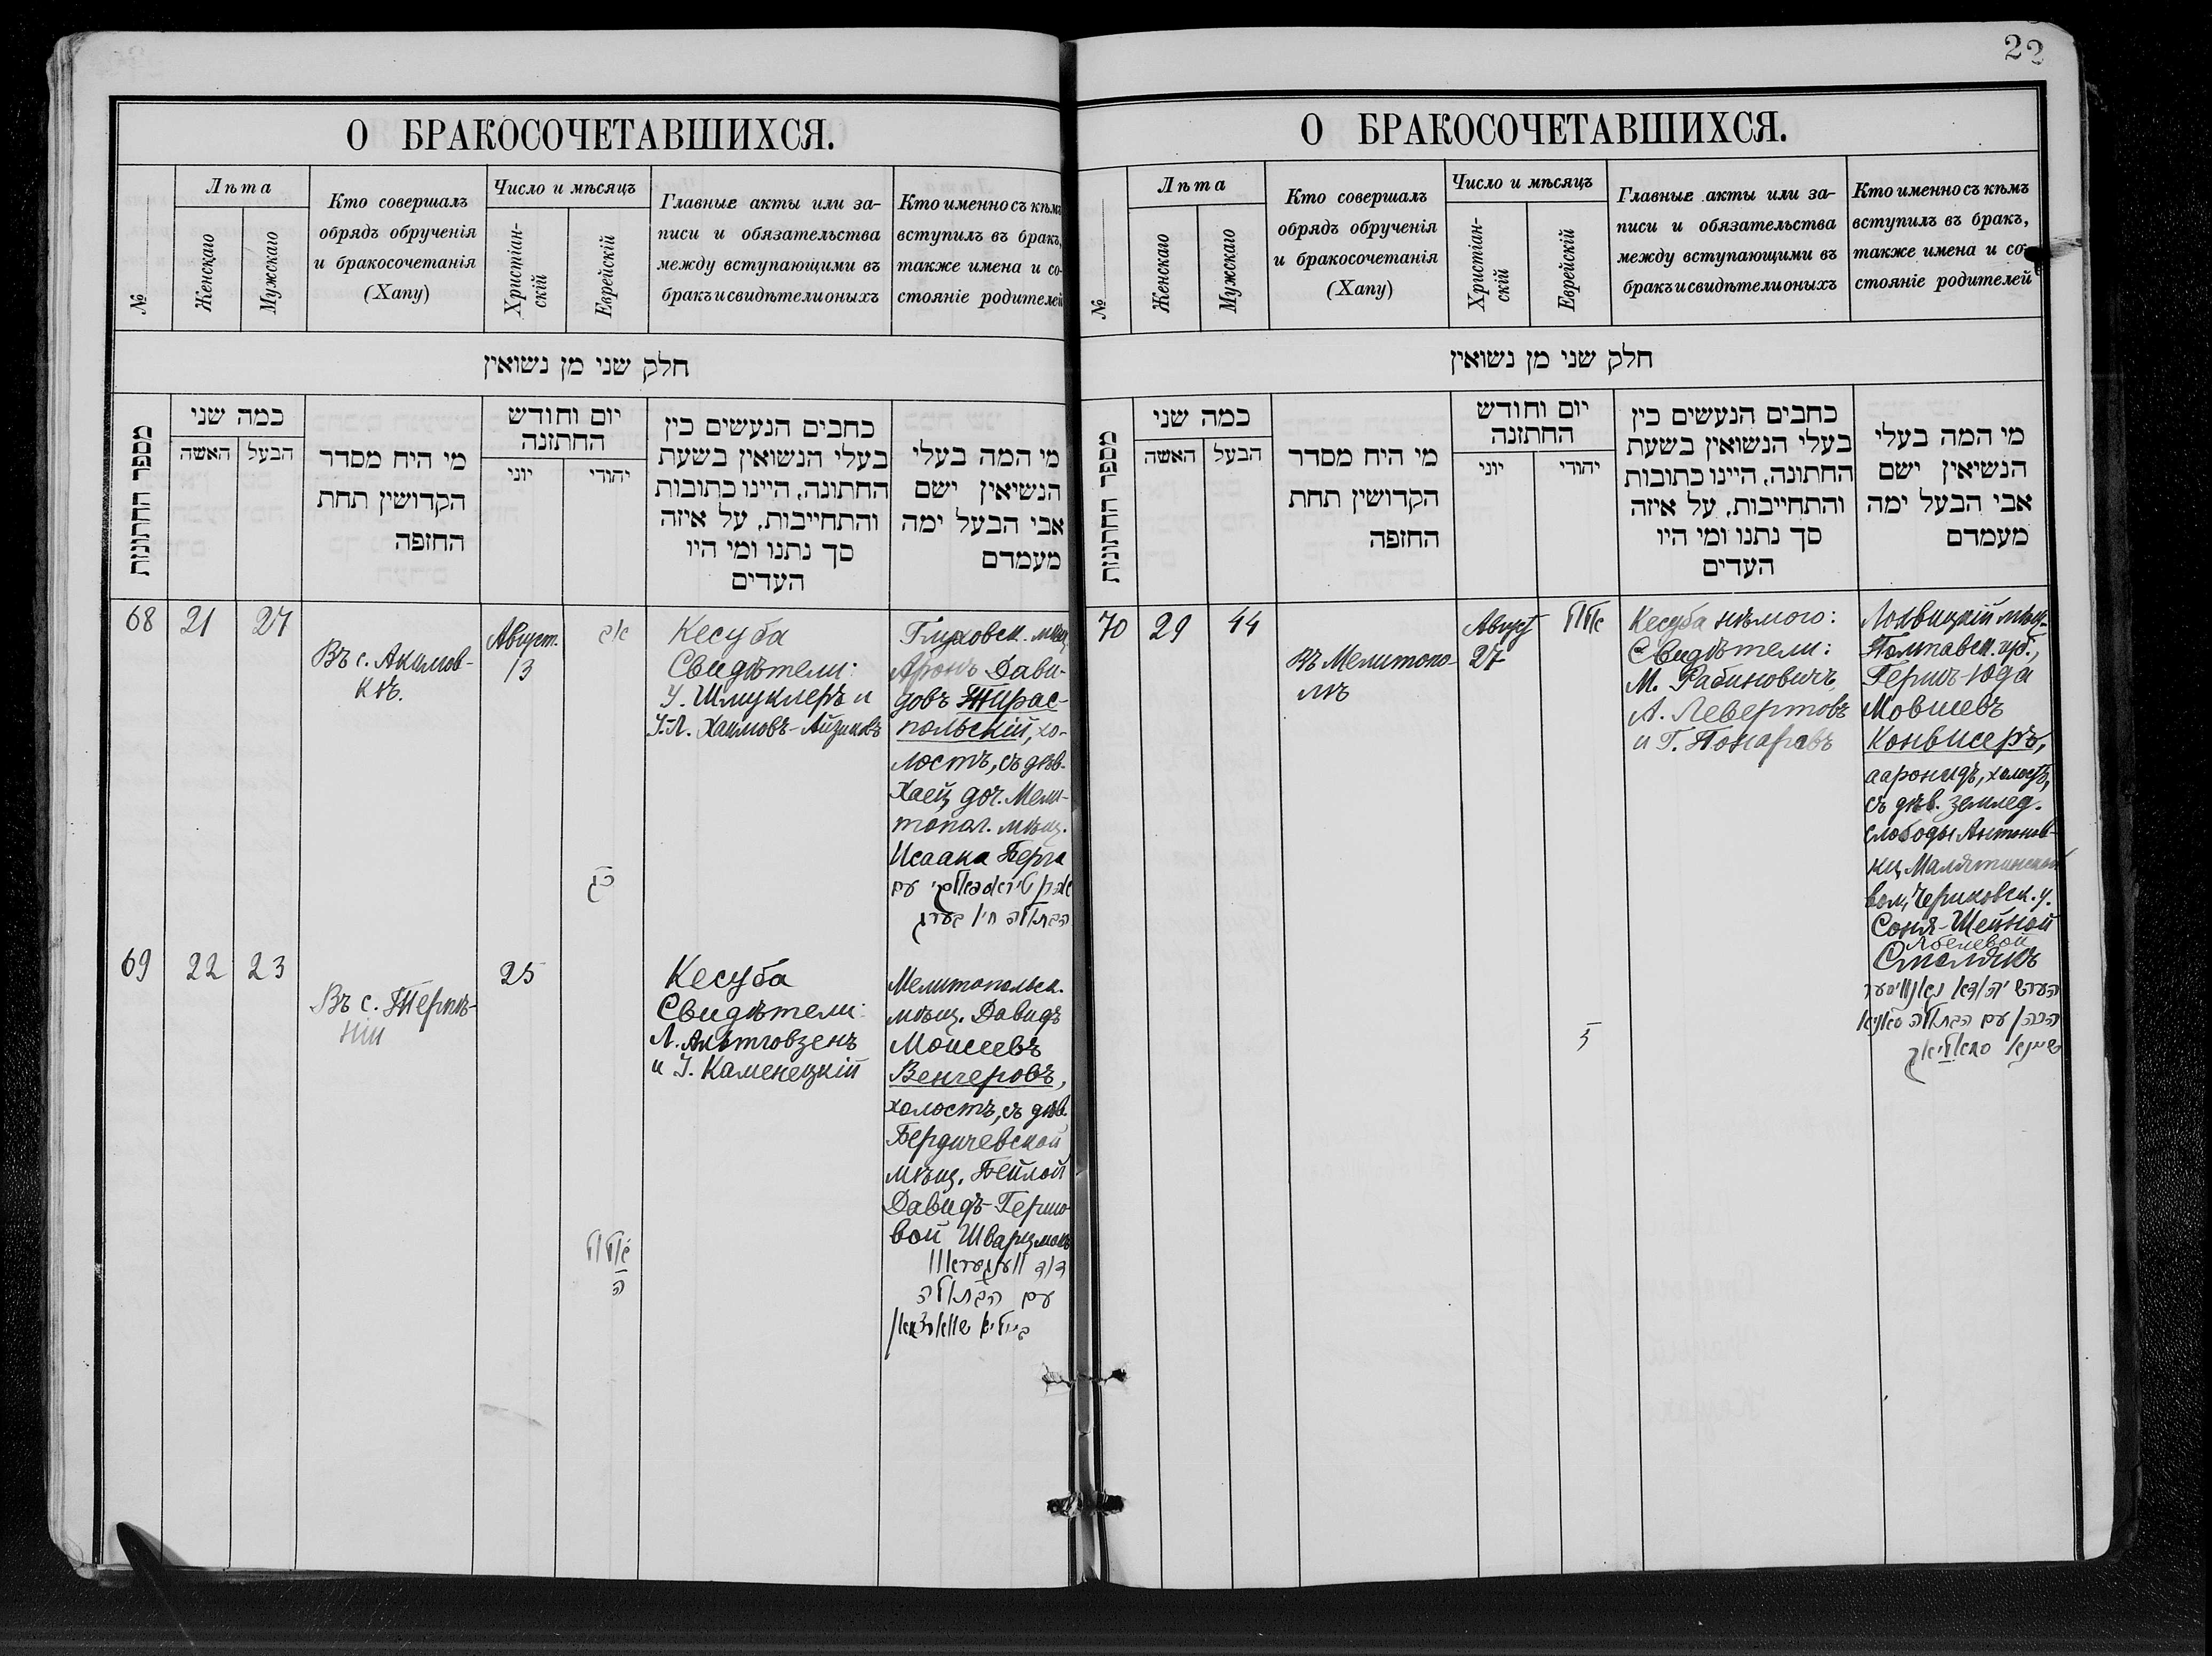 22
О БРАКОСОЧЕТАВШИХСЯ.
№
Лѣта
Женскаго
Мужскаго
Кто совершалъ
обрядъ обрученія
и бракосочетанія
(Хапу)
Число и мѣсяцъ
Христіан-
скій
Еврейскій
Главные акты или за-
писи и обязательства
между вступающими въ
бракъ и свидѣтели оныхъ
Кто именно съ кѣмъ
вступилъ въ бракъ,
также имена и со-
стояніе родителей
חלק שני מן נשואין
מספר החתונות
כמה שני
האשה
הבעל
מי היח מסדר
הקדושין תחת
החזפה
יום וחודש
החתזנה
יוני
יהודי
כחבים הנעשים כין
בעלי הנשואין בשעת
החתונה, היינו כתובות
והתחייבות, על איזה
סך נתנו ומי היו
העדים
מי המה בעלי
הנשיאין ישם
אבי הבעל ימה
מעמדם
68
21
27
Въ с. Акимов-
кѣ.
Август.
13
אב
כג
Кесуба
Свидѣтели:
У. Шмуклеръ и
І.-Л. Хаимовъ-Айзикъ
Глуховск. мѣщ.
Аронъ Дави-
довъ Тирас-
польскій, хо-
лостъ, съ дѣв.
Хаей, доч. Мели-
топол. мѣщ.
Исаака Берга
אהרן טיראספאלסקי עם
הבתולה חיה בערג
69
22
23
Въ с. Терпѣ-
ніи
25
אלול
ה
Кесуба
Свидѣтели:
и І. Каменецкій
Мелитопольск.
мѣщ. Давидъ
Моисеевъ
Венгеровъ,
холостъ, съ дѣв.
Бердичевской
мѣщ. Бейлой
Давидъ-Гершо-
вой Шварцманъ
דוד ווענגעראוו
עם הבתולה
ביילא שווארצמאן
О БРАКОСОЧЕТАВШИХСЯ.
№
Лѣта
Женскаго
Мужскаго
Кто совершалъ
обрядъ обрученія
и бракосочетанія
(Хапу)
Число и мѣсяцъ
Христіан-
скій
Еврейскій
Главные акты или за-
писи и обязательства
между вступающими въ
бракъ и свидѣтели оныхъ
Кто именно съ кѣмъ
вступилъ въ бракъ,
также имена и со-
стояніе родителей
חלק שני מן נשואין
מספר החתונות
כמה שני
האשה
הבעל
מי היח מסדר
הקדושין תחת
החזפה
יום וחודש
החתזנה
יוני
יהודי
כחבים הנעשים כין
בעלי הנשואין בשעת
החתונה, היינו כתובות
והתחייבות, על איזה
סך נתנו ומי היו
העדים
מי המה בעלי
הנשיאין ישם
אבי הבעל ימה
מעמדם
70
29
44
Въ Мелитопо-
лѣ
Август
27
אלול
ז
Кесуба нѣмого:
Свидѣтели:
М. Рабиновичъ,
А. Левертовъ
и Г. Понаровъ
Лохвицкій мѣщ.
Полтавск. губ.,
Гершъ-Юда
Мовшевъ
Конвисеръ,
ааронидъ, холостъ,
съ дѣв. землед.
слободы Антонов-
ки, Малятинской
вол., Чериковск. у.
Соня-Шейной
Абелевой
Смолякъ
הערש יהודא קאנוויסער
הכהן עם הבתולה סאניא
שיינא סמאליאק